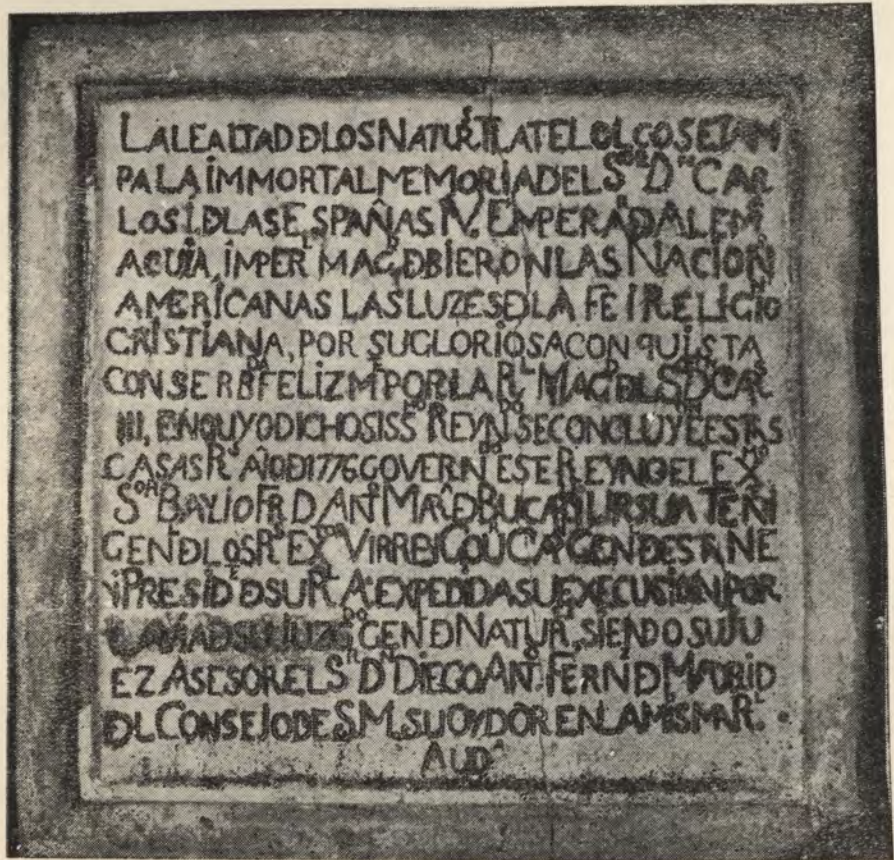 LA LEALTAD ĐLOS NATU.ˢ TLATELOLCO SETAM
PA LA ÍMMORTAL MEMORIA DEL Sᴼᴿ Dᴺ CAR
LOS I. ĐLAS ESPAÑAS IV. EMPERAᴿ D ALEMᴬ
A CUIA, ÍMPERˡ MAGᴰ ĐBIERON LAS NACION
AMERÍCANAS LAS LUZES ĐLA FE I RELIGIO
CRISTIANA, POR SU GLORIOSA CONQUISTA
CONSERBᴰᴬ FELIZMᵀᴱ POR LA Rᴸ MAGᴰ ĐL Sᴼᴿ D CARˢ
III, EN QUYO DICHOSISSᴼ REYNᴰᴼ SE CONCLUYE ESTAS
CASAS Rˢ AÑO Đ 1776 GOVERNᴰᴼ ESTE REYNO EL EXᴹᴼ
Sᴼᴿ BAYLIO FR D ANᵒ MAᴬ Đ BUCARˡ URSUA TENᵀ
GENˡ ĐLOS Rˢ EXᵀᴼˢ VIRREI GOUᴿ CAᴺ GEN ĐESTA NE
I PRESIDᴱ Đ SU Rᴸ Aᴬ EXPEDIDA SU EXECUSION POR
LA VIA Đ SU JUZGᴰᴼ GEN Đ NATURˢ, SIENDO SU JU
EZ ASESOR EL Sᴿ Dᴺ DIEGO ANᵒ FERNᶻ Đ MADRID
ĐL CONSEJO DE S.M. SU OYDOR EN LA MISMA Rᴸ
AUDᴬ